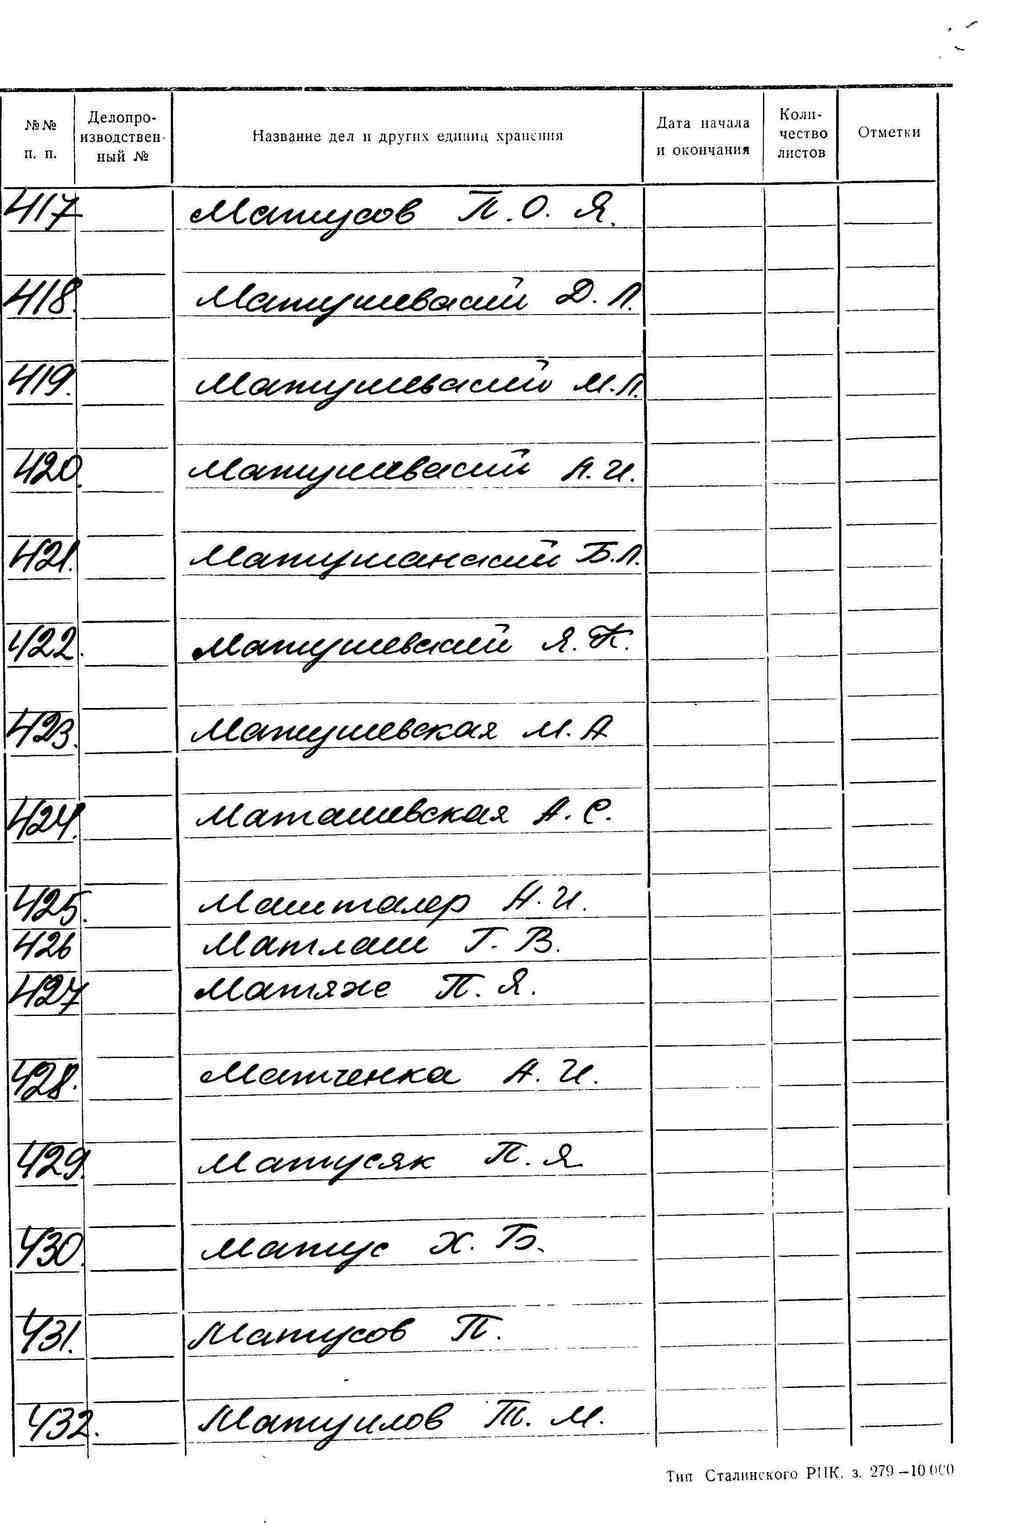 №№ п. п.
Делопро-
изводствен-
ный №
Название дел и других единиц хранения
Дата начала
и окончания
Коли-
чество
листов
Отметки
417 Матусов П.О.Я.
418. Матушевский Д.Л.
419. Матушевский М.Л.
420. Матушевский А.И.
421. Матушанский Б.Л.
422. Матушевский Я.К.
423. Матушевская М.А
424. Маташевская А.С.
425. Машталер А.И.
426 Матлаш Г.В.
427 Матяже П.Я.
428. Матченка А.И.
429. Матусяк П.Я
430. Матус Х.Б.
431. Матусов П.
432. Матуилов Т.М.
Тип Сталинского РПК. з. 279—10 000